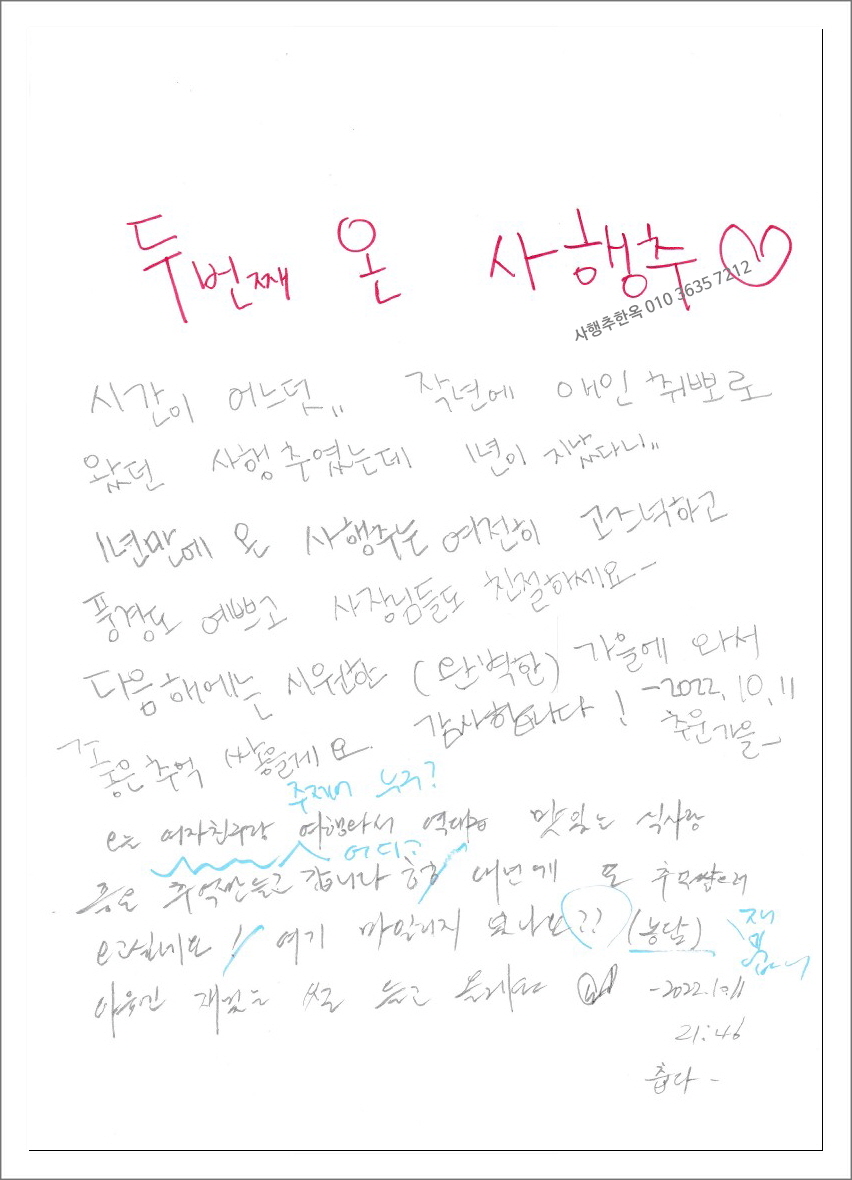 두번째 온 사행추♡
사행추한옥 010 3635 7212
시간이 어느덧,, 작년에 애인 취뽀로
왔던 사행추였는데 1년이 지났다니,,
1년만에 온 사행추는 여전히 고즈넉하고
풍경도 예쁘고 사장님들도 친절하세요~
다음해에는 시원한 (완벽한) 가을에 와서
좋은 추억 쌓을게요 감사합니다! -2022.10.11
추운가을~
주제어 누구?
는 여자친구랑 여행와서 역대급 맛있는 식사랑
어디?
좋은 추억만들고 갑니다 내년에 또 추억쌓으러
! 여기 마일리지 되나요?? (농담)
재
미
있는 글 -2022.10.11
21:46
춥다-